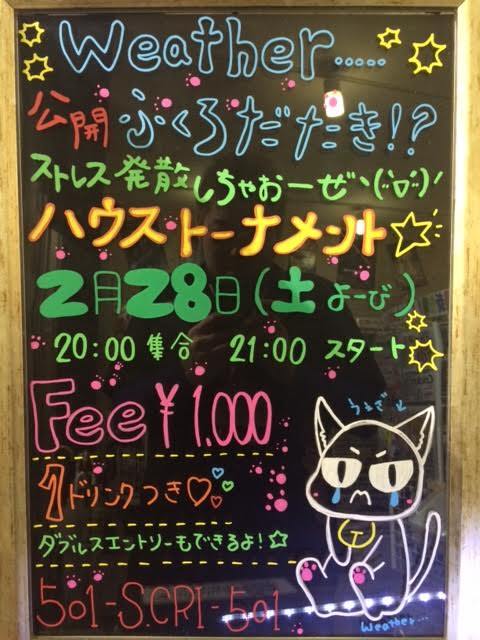 Weather.....
公開 ふくろだたき!?
ストレス発散しちゃおーぜヽ(*¨ο¨*)ノ
ハウストーナメント☆
2月28日(土よーび)
20:00 集合 21:00 スタート
Fee ¥1,000
1ドリンクつき♡
ダブルスエントリーもできるよ!☆
501-S.CRI-501
うぇざ
T
Weather...